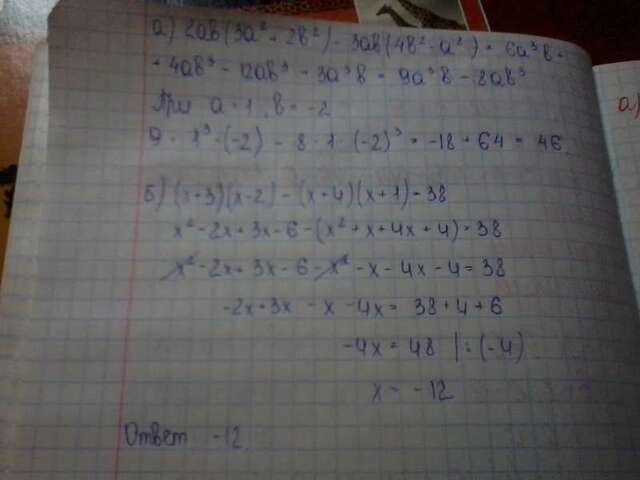 а) 2ab(3a² + 2b²) - 3ab(4b² - a²) = 6a³b +
+ 4ab³ - 12ab³ + 3a³b = 9a³b - 8ab³
При a = 1, b = -2
9 · 1³ · (-2) - 8 · 1 · (-2)³ = -18 + 64 = 46
б) (x+3)(x-2) - (x+4)(x+1) = 38
x² - 2x + 3x - 6 - (x² + x + 4x + 4) = 38
x² - 2x + 3x - 6 - x² - x - 4x - 4 = 38
-2x + 3x - x - 4x = 38 + 4 + 6
-4x = 48 | : (-4)
x = -12
Ответ -12
а)